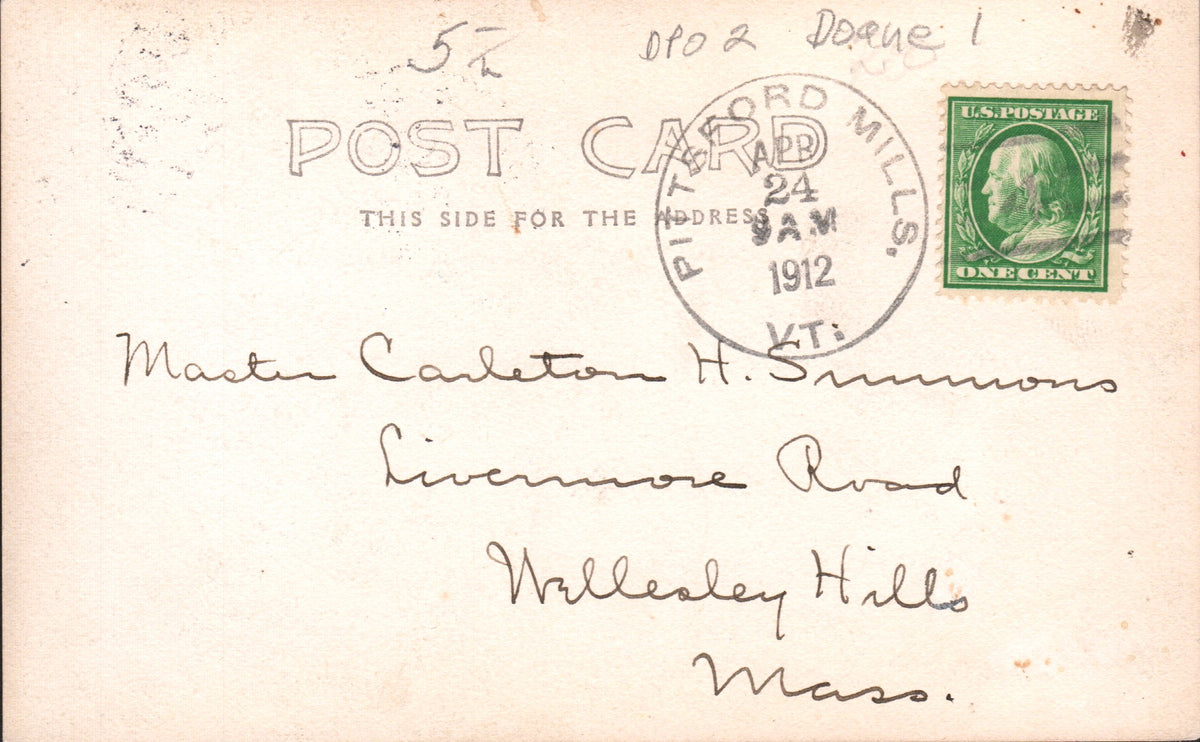 5-
DPO 2 Doane 1
POST CARD
THIS SIDE FOR THE ADDRESS
PITTSFORD MILLS,
APR
24
9 AM
1912
VT.
U.S. POSTAGE
1
ONE CENT
Master Carleton H. Simmons
Livermore Road
Wellesley Hills
Mass.